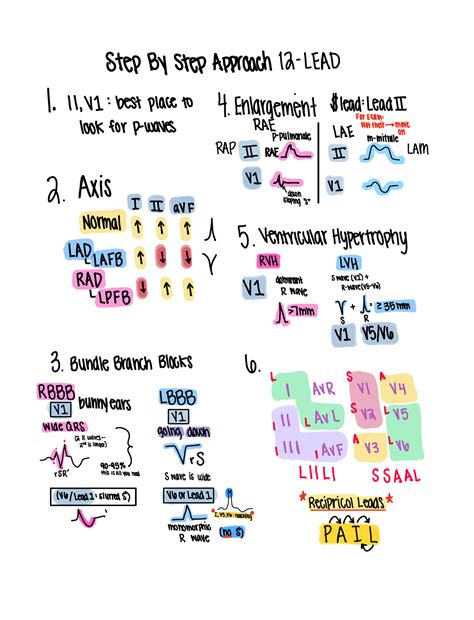 Step By Step Approach 12-LEAD
1. II, V1 : best place to
look for p-waves
2. Axis
I II aVF
Normal ↑ ↑ ↑
LAD
LAFB ↑ ↓ ↓
RAD
LPFB ↓ ↑ ↑
3. Bundle Branch Blocks
RBBB
V1 bunny ears
wide QRS
(2 R waves—
2nd is longer)
rSR'
90-95%
this is all you need
(V6/Lead 1 = slurred S)
LBBB
V1
going down
rS
S wave is wide
V6 or Lead 1
monomorphic
R wave
(no S)
4. Enlargement
$lead: Lead II
RAE
p-pulmonale
RAP II RAE
V1
down
sloping "S"
For Exam:
Not their → move
on
LAE
m-mitrale
II LAM
V1
5. Ventricular Hypertrophy
RVH
V1 dominant
R wave
>7mm
LVH
S wave (V1) +
R-wave (V5-V6)
+ ≥ 35 mm
S R
V1 V5/V6
6.
L I AVR S V1 A V4
II L AVL S V2 L V5
III I AVF A V3 L V6
LIILI SSAAL
*Recipricol Leads*
PAIL